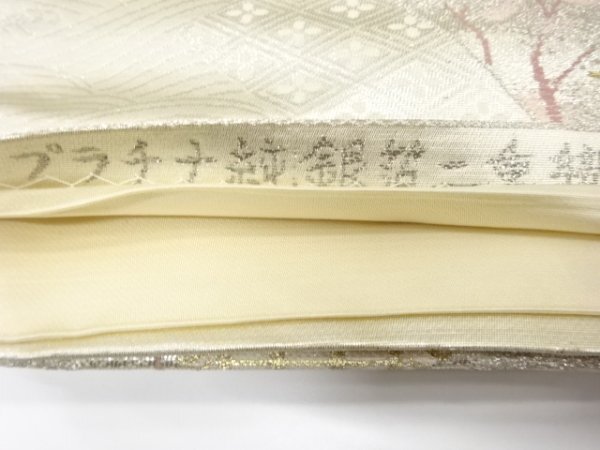 プラチナ純銀箔二重織